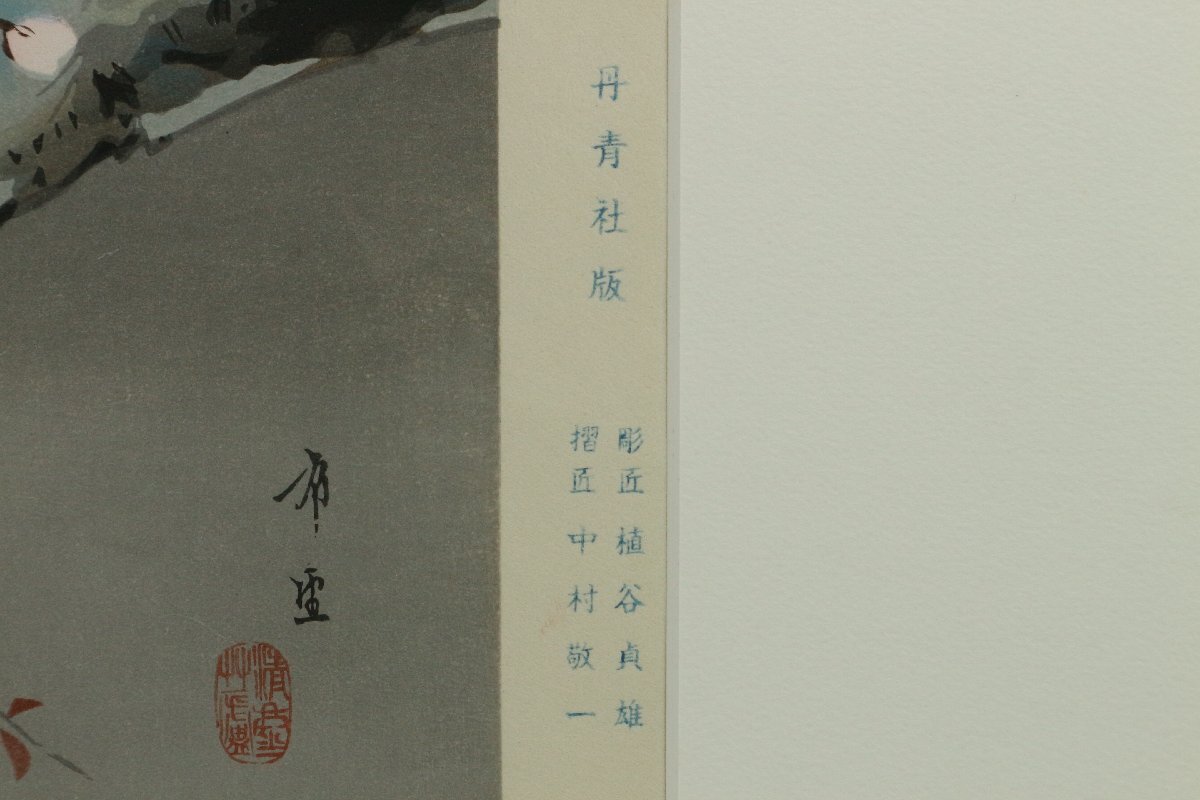 丹青社版
彫匠 植谷貞雄
摺匠 中村敬一